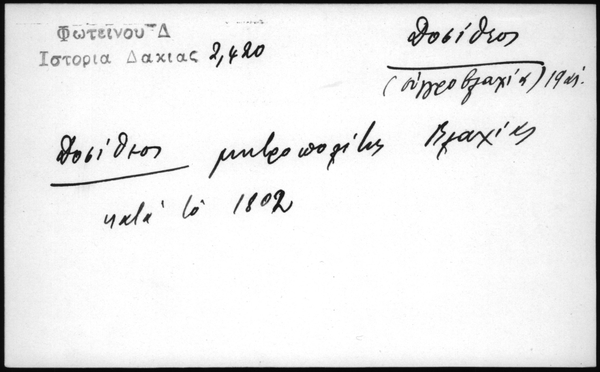 Φωτεινου Δ
Ιστορια Δακιας 2,420
Δοσίθεος
(Οὐγγροβλαχία) 19 αἰ.
Δοσίθεος μητροπολίτης Βλαχίας
κατά τὸ 1802